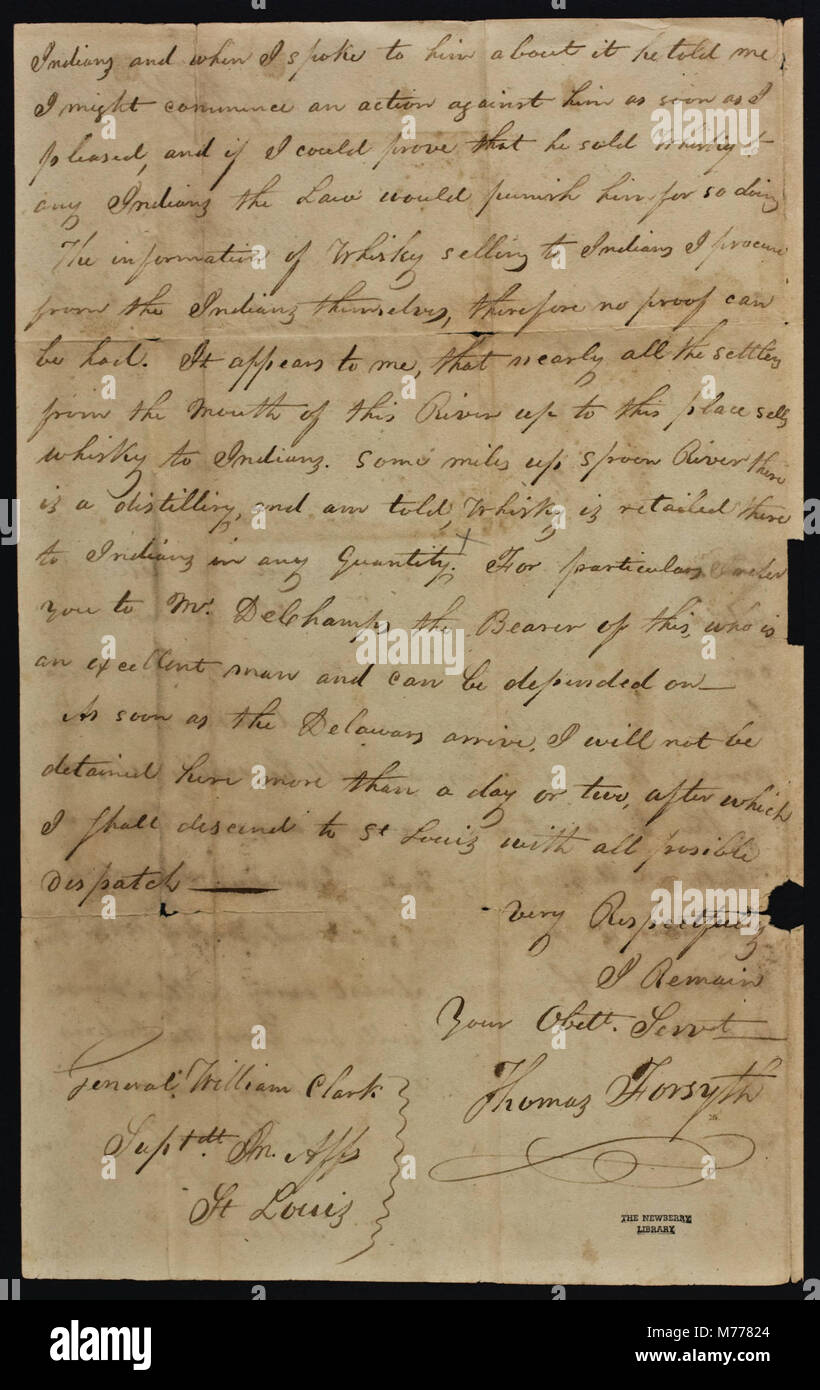 Indians and when I spoke to him about it he told me
I might commence an action against him as soon as I
pleased, and if I could prove that he sold Whisky to
any Indians the Law would punish him for so doing
The information of Whisky selling to Indians I procure
from the Indians themselves, therefore no proof can
be had. It appears to me, that nearly all the settlers
from the Mouth of this River up to this place sells
whisky to Indians. Some miles up Spoon River there
is a distillery, and am told, Whisky is retailed there
to Indians in any Quantity. For particulars refer
you to Mr. DelChamps the Bearer of this, who is
an excellent man and can be depended on—
As soon as the Delawars arrive, I will not be
detained here more than a day or two, after which
I shall descend to St Louis with all possible
dispatch ——
Very Respectfully
I Remain
Your Obett. Servt
Thomas Forsyth
General William Clark
Suptdt. In. Affs
St Louis
THE NEWBERRY
LIBRARY
alamy
alamy
Image ID: M77824
www.alamy.com